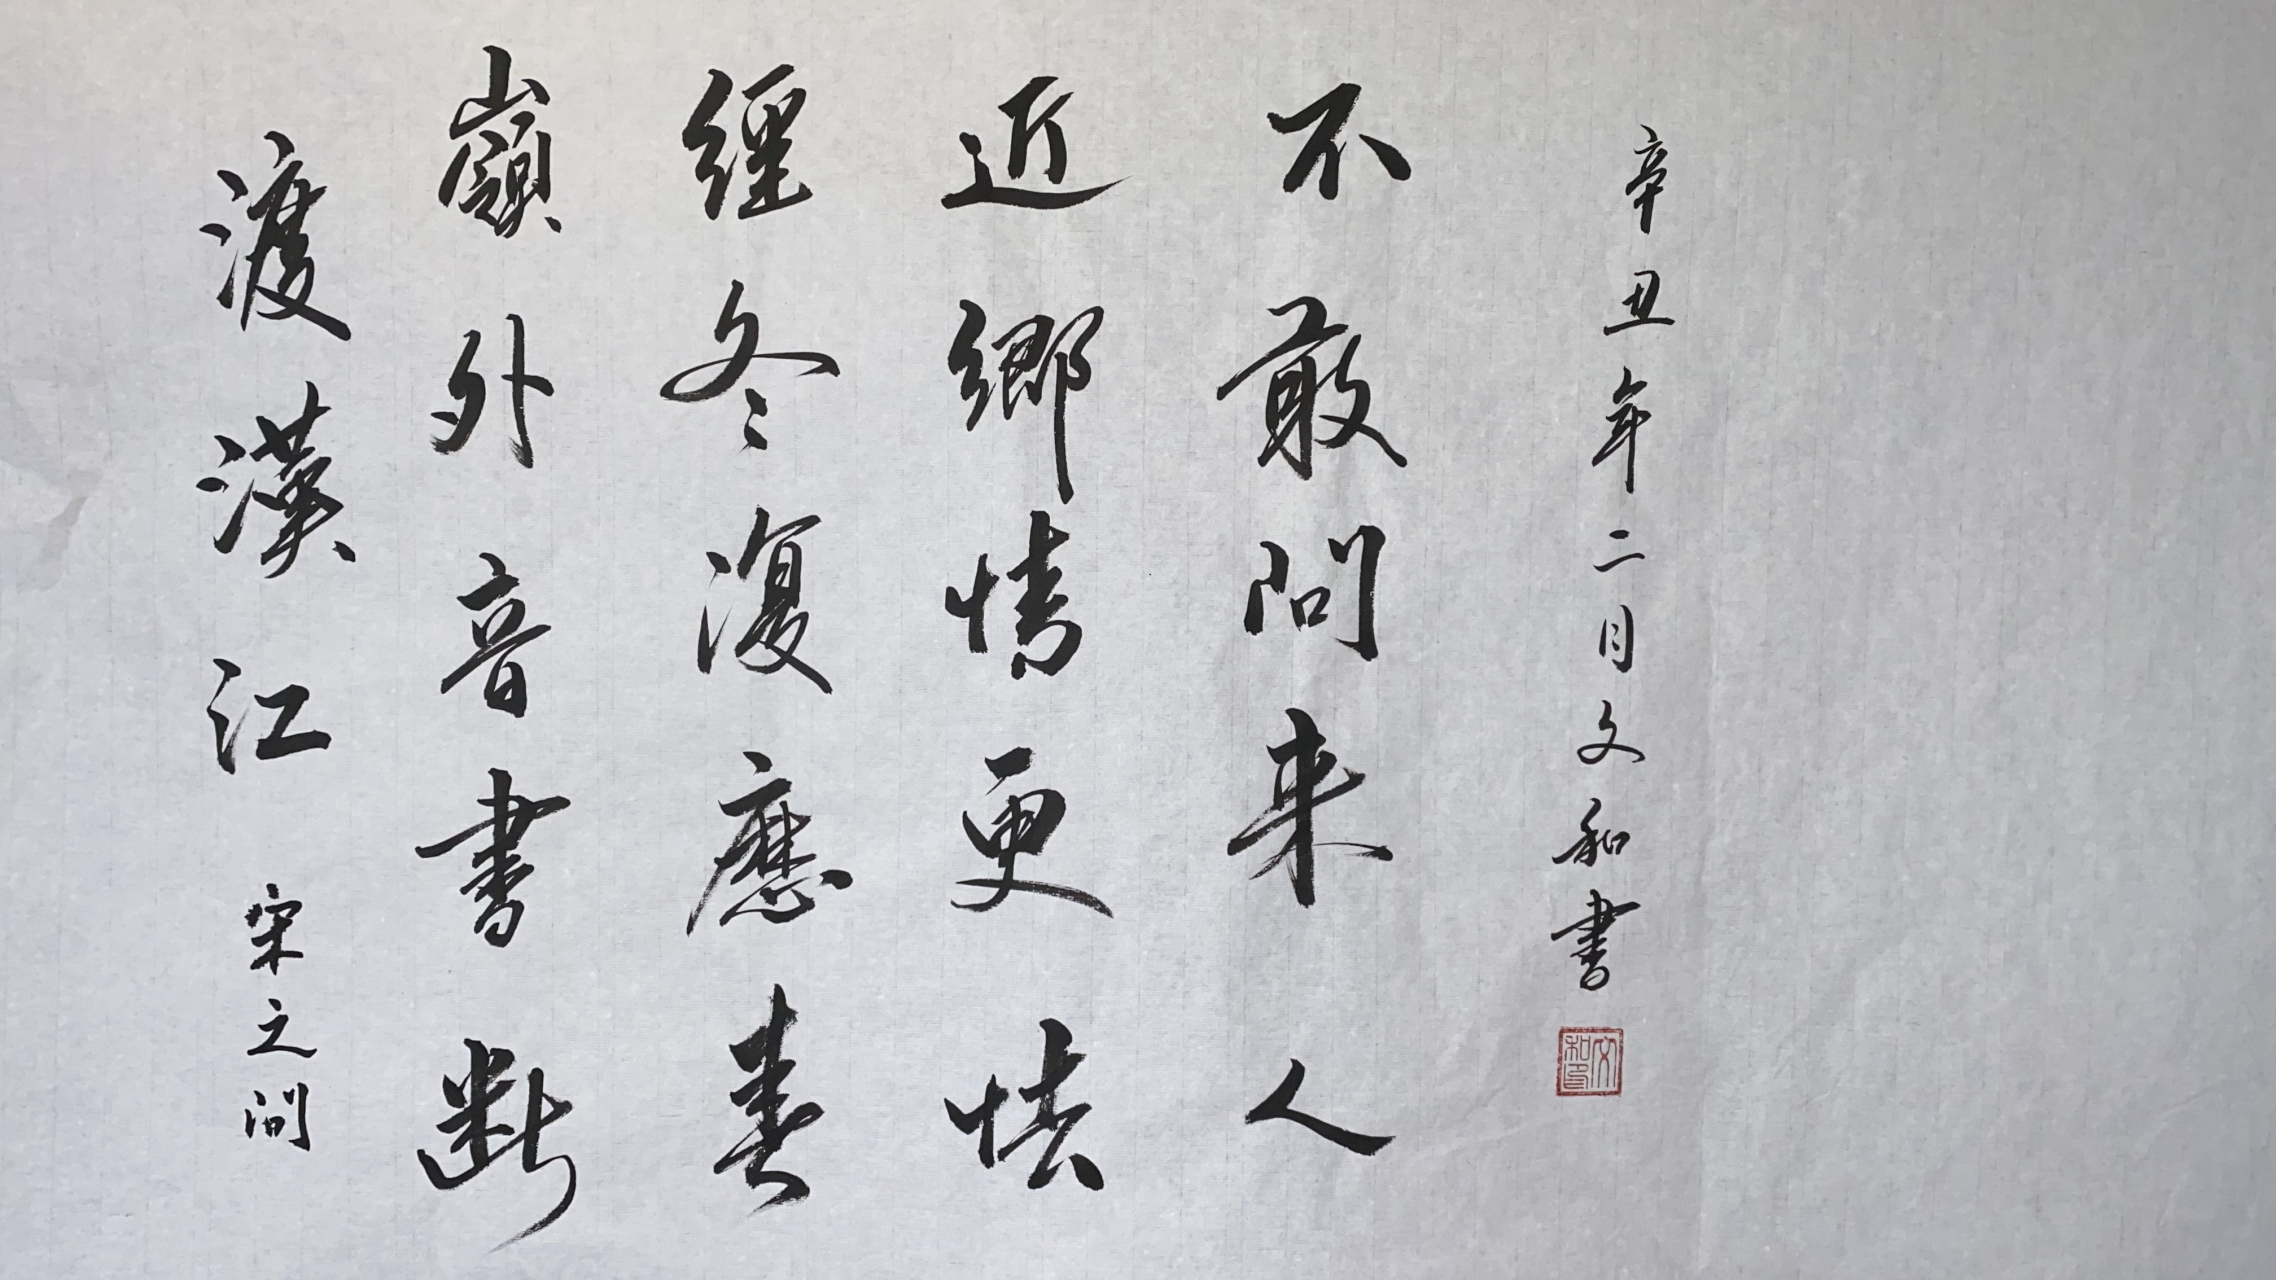 渡漢江 宋之问
嶺外音書斷
經冬復應春
近鄉情更怯
不敢问来人
辛丑年二月文和書
文和印